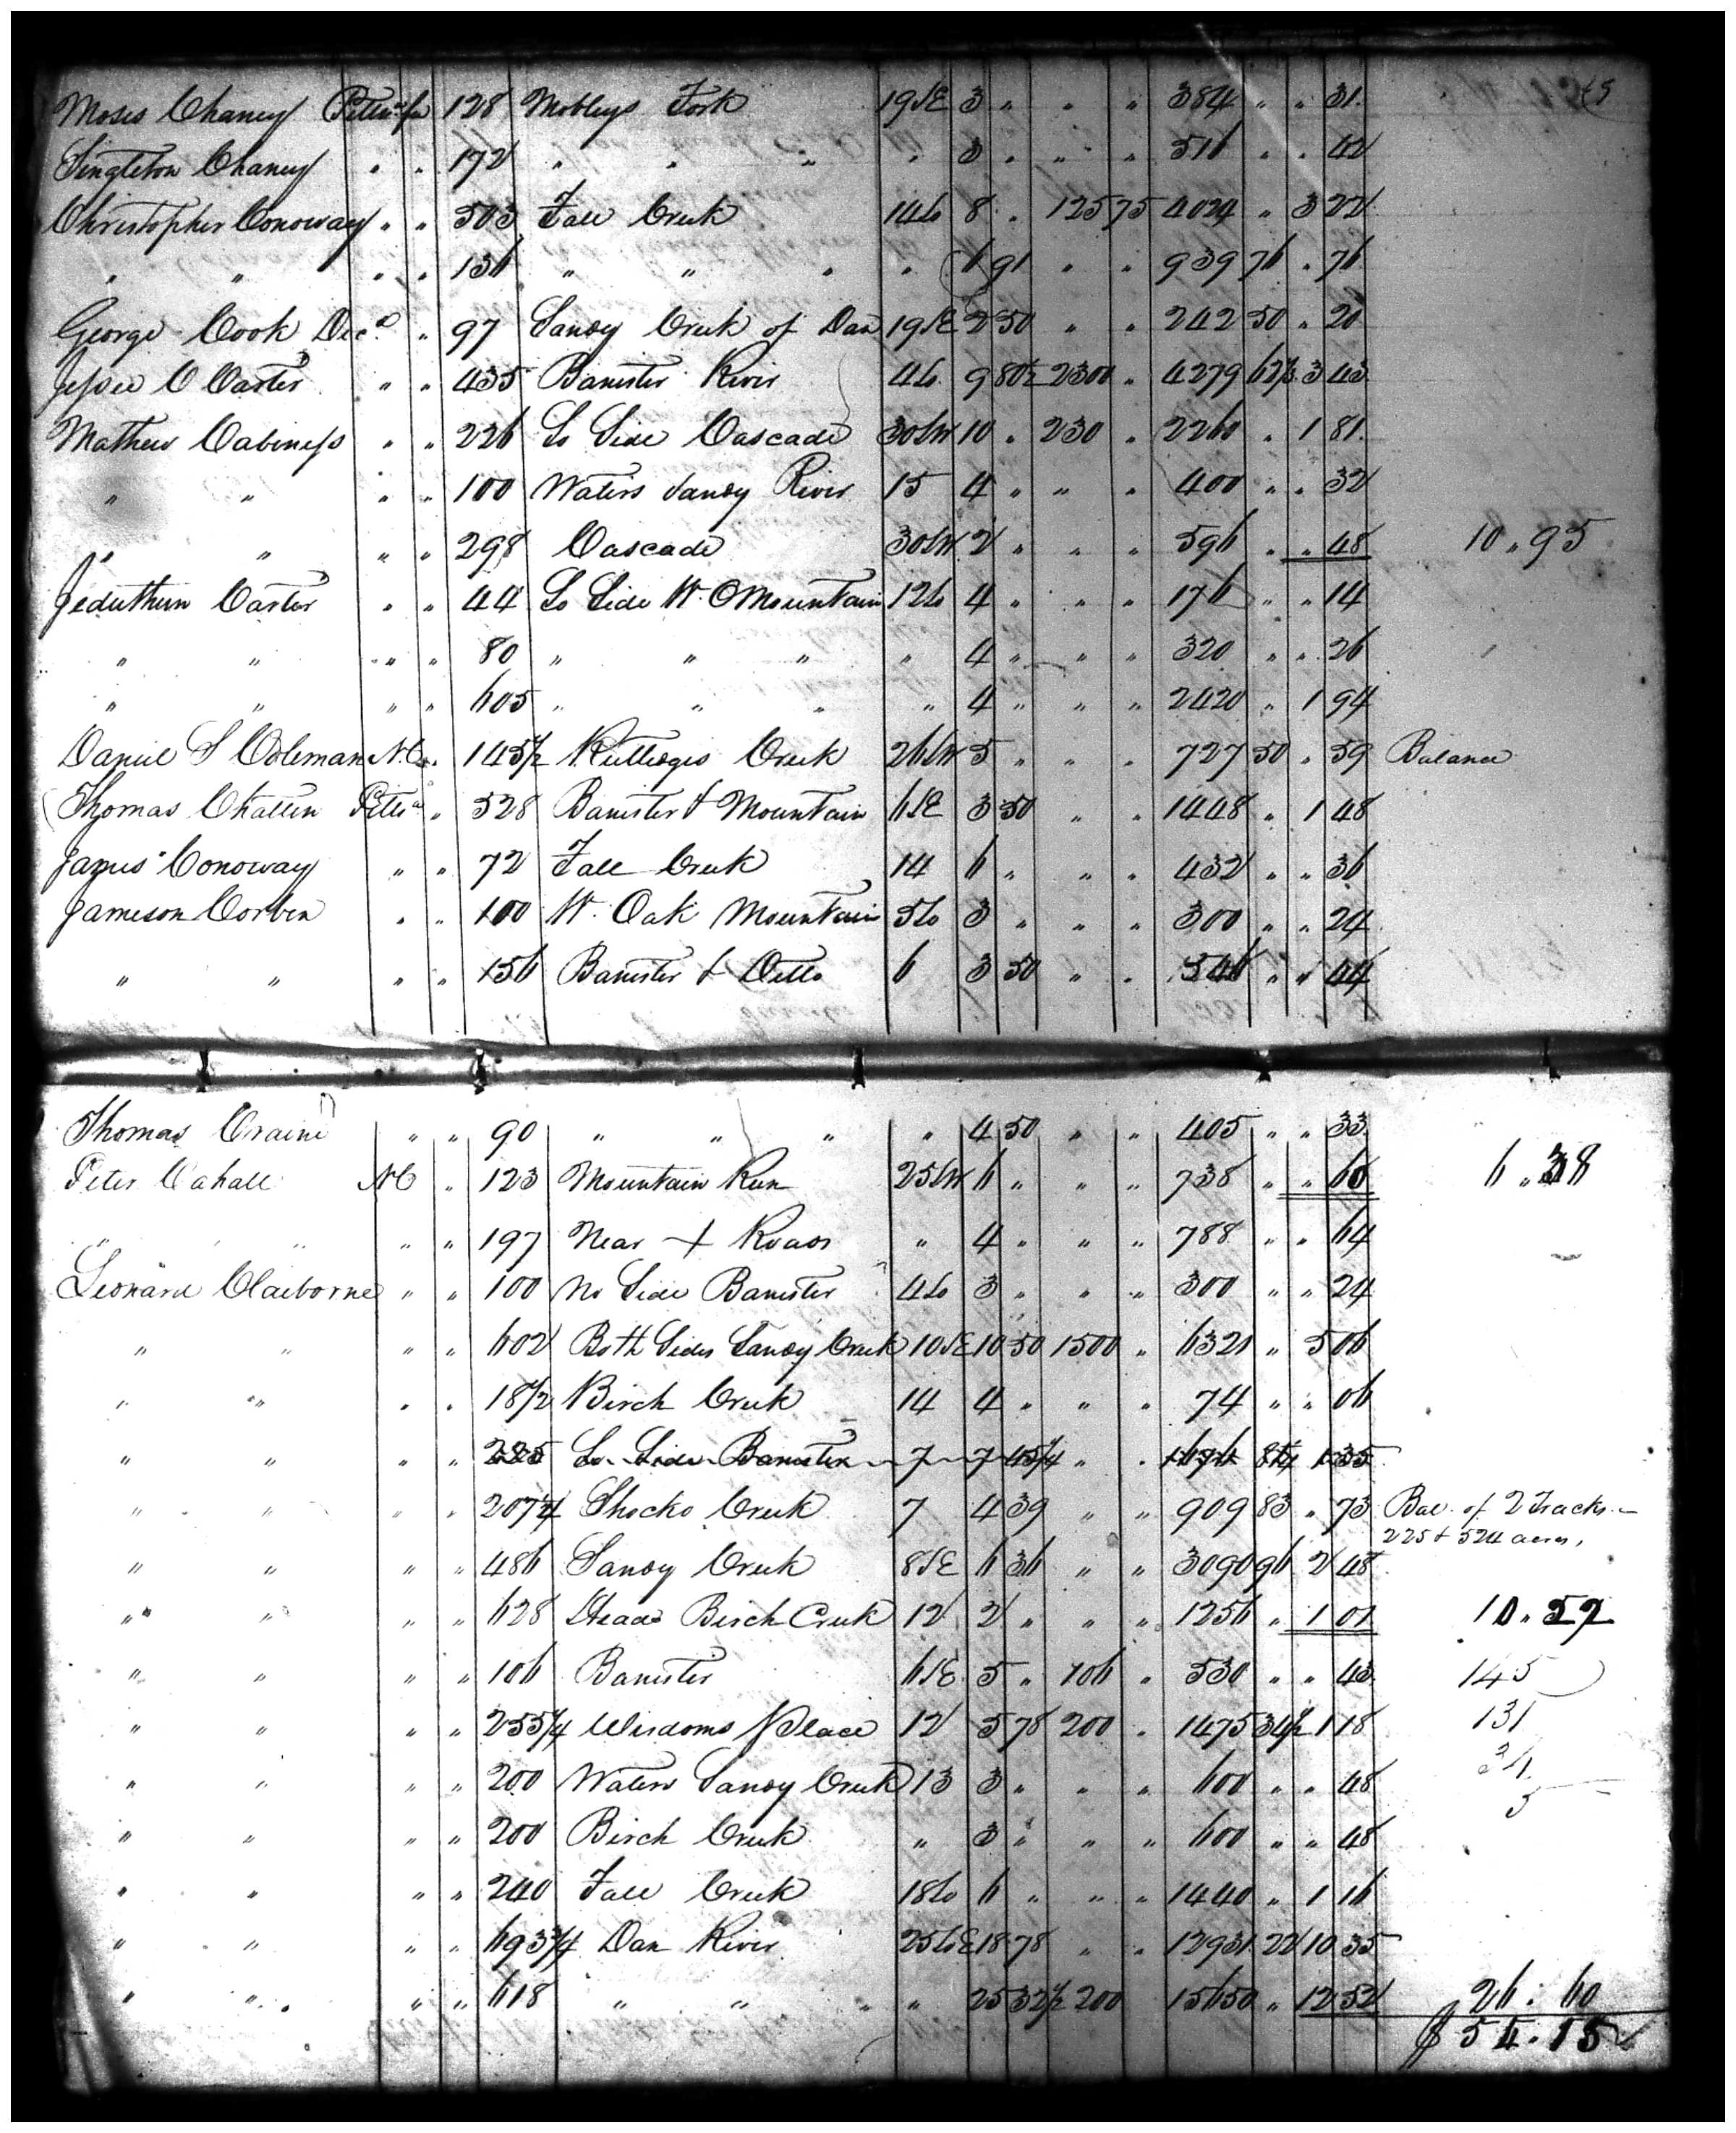 Moses Chaney Pittsa fee 128 Mobleys Fork 19 SE 3 " " " 384 " " 31.
Singleton Chaney " " 172 " " " " 3 " " " 516 " " 42
Christopher Conoway " " 503 Fall Creek 14 So 8 " 125 75 4024 " 3 22
" " " " 136 " " " " 6 91 " " 939 76 " 76
George Cook Decd " " 97 Sandy Creek of Dan 19 SE 2 50 " " 242 50 " 20
Jessee C Carter " " 435 Banister River 4 So 9 80 1/2 2300 " 4279 62 1/2 3 43
Mathew Cabiness " " 226 So Side Cascade 30 SW 10 " 230 " 2260 " 1 81.
" " " " 100 Waters Sandy River 15 4 " " " 400 " " 32
" " " " 298 Cascade 30 SW 2 " " " 596 " " 48 10 " 95
Jeduthun Carter " " 44 So Side W. O Mountain 12 So 4 " " " 176 " " 14
" " " " 80 " " " " 4 " " " 320 " " 26
" " " " 605 " " " " 4 " " " 2420 " 1 94
Daniel S Coleman N.C. " 145 1/2 Rutledges Creek 26 SW 5 " " " 727 50 " 59 Balance
Thomas Chattin Pittsa " 528 Banister & Mountain 6 SE 3 50 " " 1448 " 1 48
James Conoway " " 72 Fall Creek 14 6 " " " 432 " " 36
Jameson Corbin " " 100 W. Oak Mountain 5 So 3 " " " 300 " " 24
" " " " 156 Banister & Ditto 6 3 50 " " 546 " " 44
Thomas Craine " " 90 " " " " 4 50 " " 405 " " 33
Peter Cahall NC " 123 Mountain Run 25 SW 6 " " " 738 " " 60 6 " 38
" " " " 197 Near + Roads " 4 " " " 788 " " 64
Leonard Claiborne " " 100 No Side Banister 4 So 3 " " " 300 " " 24
" " " " 602 Both Sides Sandy Creek 10 SE 10 50 1500 " 6321 " 5 06
" " " " 18 1/2 Birch Creek 14 4 " " " 74 " " 06
" " " " 225 So Side Banister 7 7 45 1/4 " " 1676 81 1/4 1 35
" " " " 207 1/4 Shocko Creek 7 4 39 " " 909 83 " 73 Bal. of 2 Tracks
225 & 524 acres,
" " " " 486 Sandy Creek 8 SE 6 36 " " 3090 96 2 48
" " " " 628 Heads Birch Creek 12 2 " " " 1256 " 1 01 10 " 22
" " " " 106 Banister 6 SE 5 " 106 " 530 " " 43 145
" " " " 255 1/4 Wisdoms Place 12 5 78 200 " 1475 34 1/2 1 18 131
" " " " 200 Waters Sandy Creek 13 3 " " " 600 " " 48
" " " " 200 Birch Creek " 3 " " " 600 " " 48
" " " " 240 Fall Creek 18 So 6 " " " 1440 " 1 16
" " " " 693 3/4 Dan River 25 So E 18 78 " " 12931 22 10 35
" " " " 618 " " " " 25 32 1/2 200 15650 " 12 52 26. 60
$ 54.15